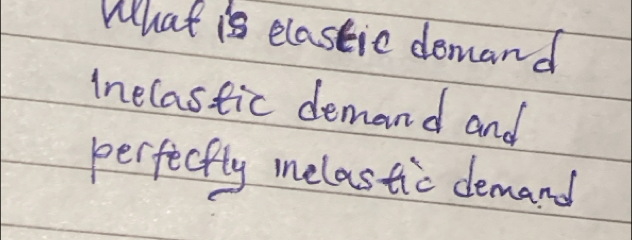 What is elastic demand
Inelastic demand and
perfectly inelastic demand